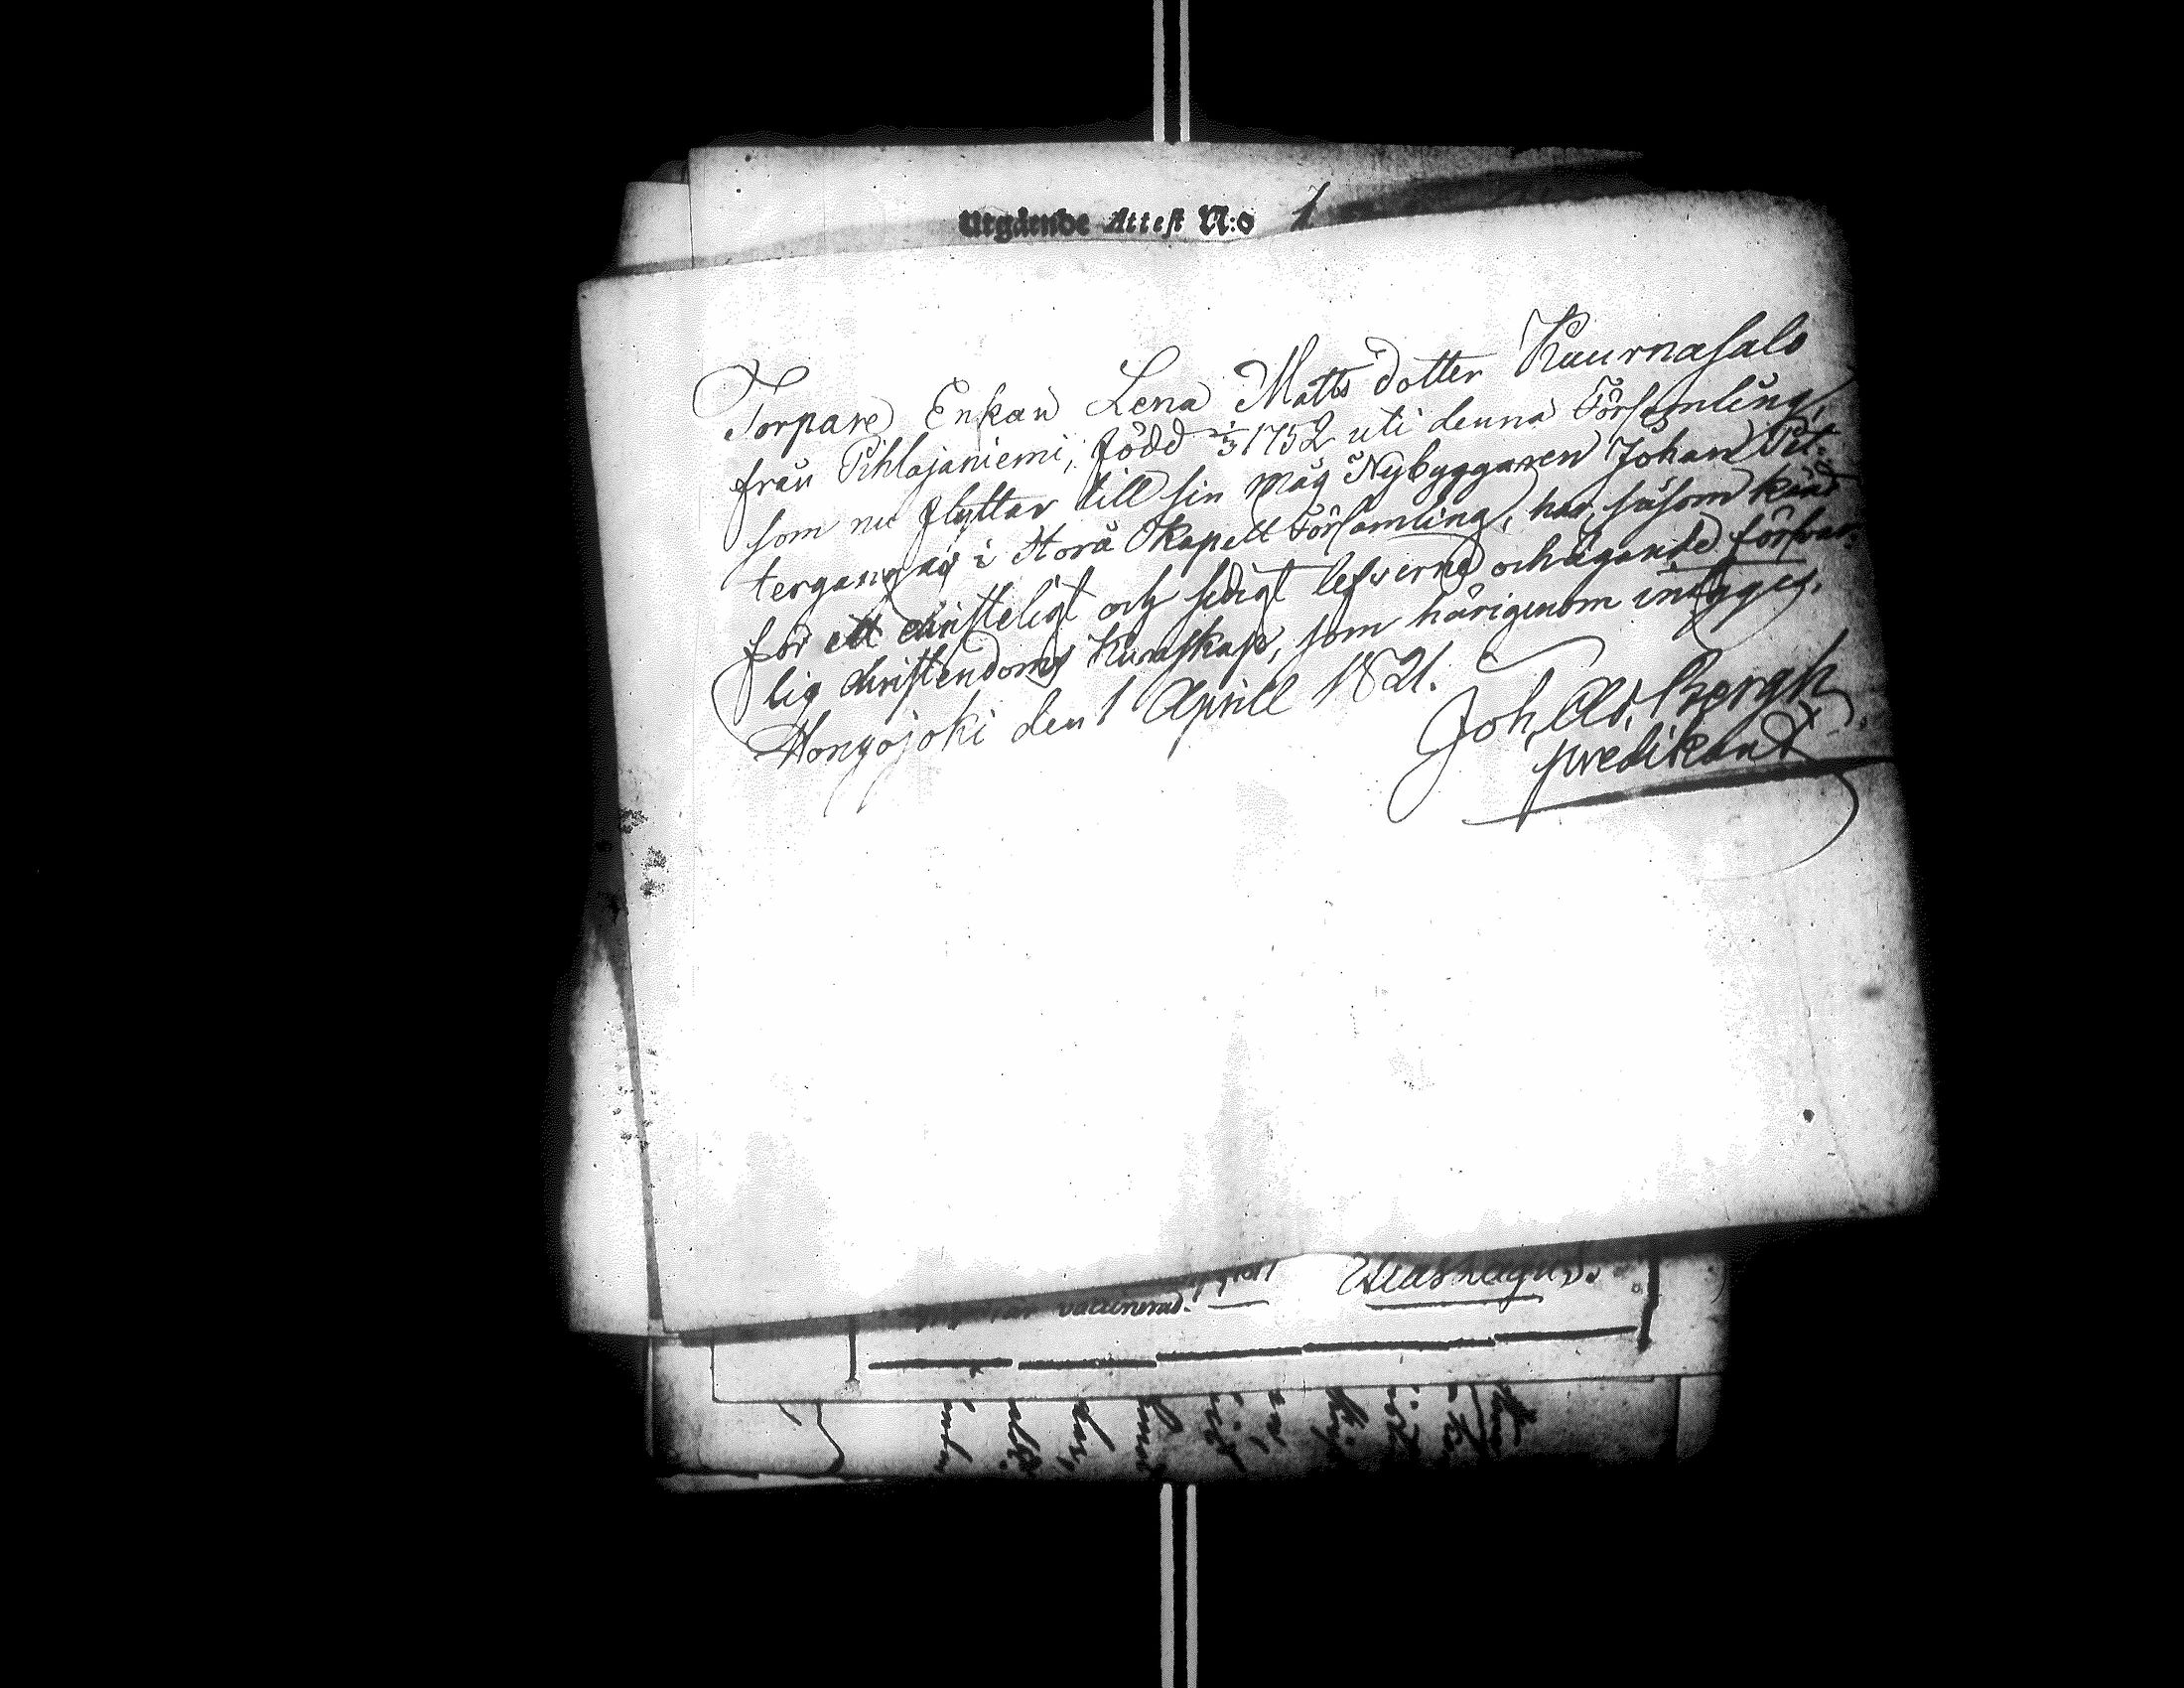 Utgående Attest N:o 1
Torpare Enkan Lena Matts dotter Kuurnasalo
från Pihlajaniemi, född 1752 uti denna Församling,
som nu flyttar till sin måg Nybyggaren Johan Pit-
tergangas i Storå Kapell Församling, har, såsom känd
för ett christeligt och sedigt lefverne och ägande försvar-
lig christendoms Kunskap, som härigenom intygges.
Hongojoki den 1 Aprill 1821.
Joh. Ad. Bergh
predikant
vaccinerad.